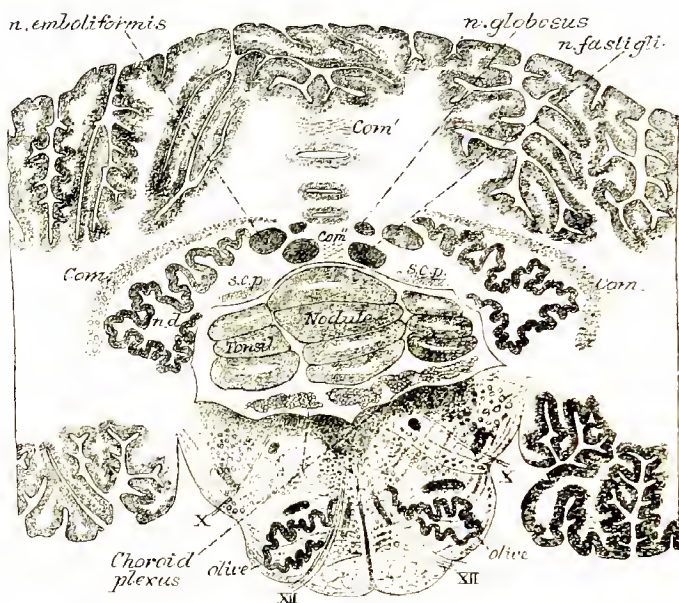 n. emboliformis
n. globosus
n. fastigii.
Com'
Com''
Com.
s.c.p.
s.c.p.
Com.
n.d.
Nodule
Tonsil
X
X
Choroid
plexus
olive
olive
XII
XII